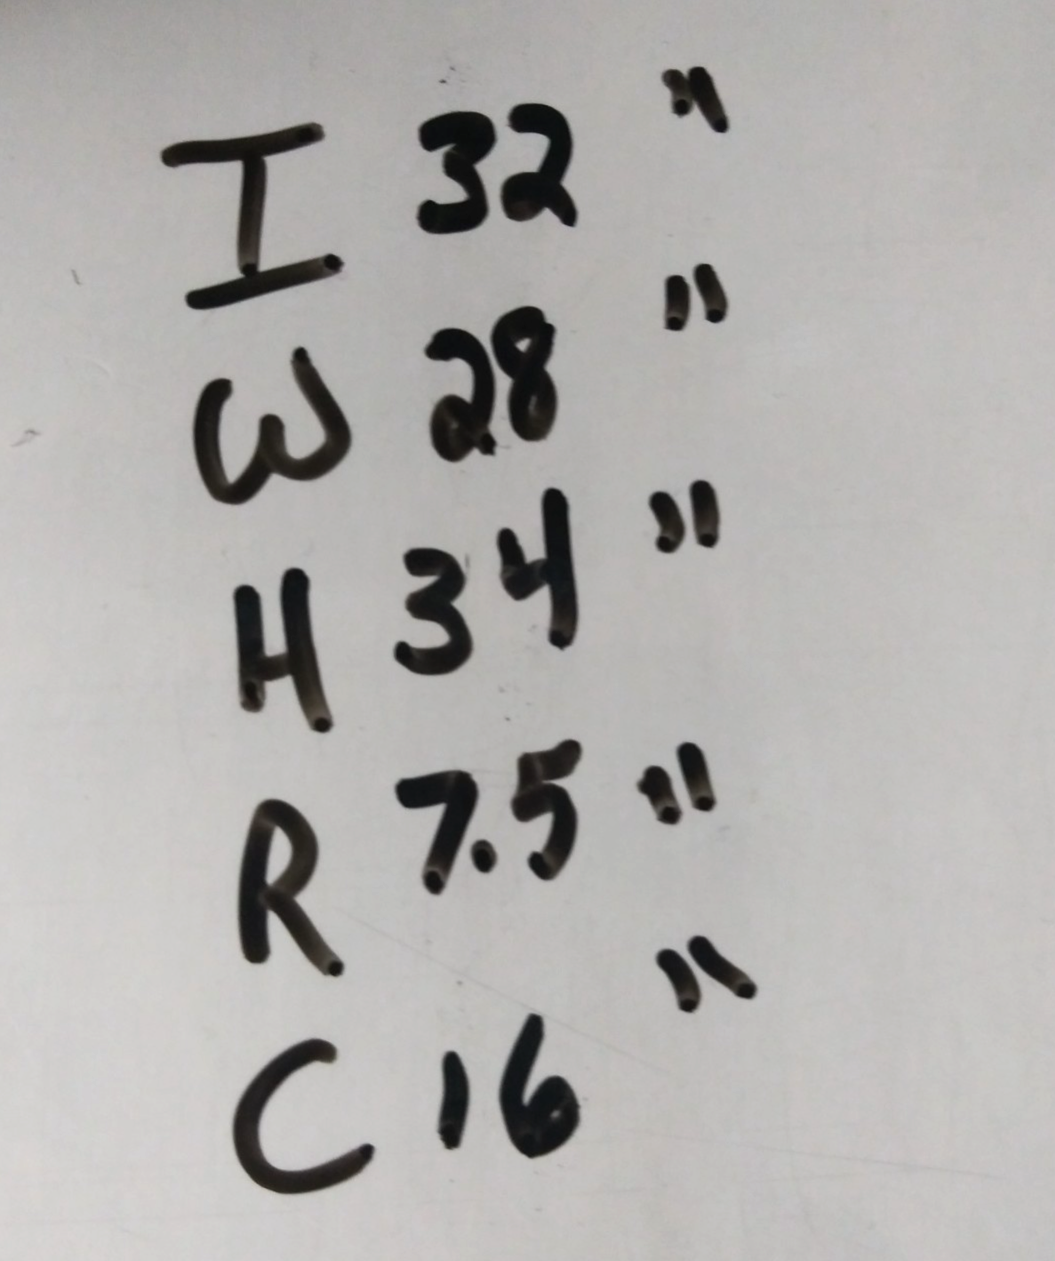 I 32 "
W 28 "
H 34 "
R 7.5 "
C 16 "